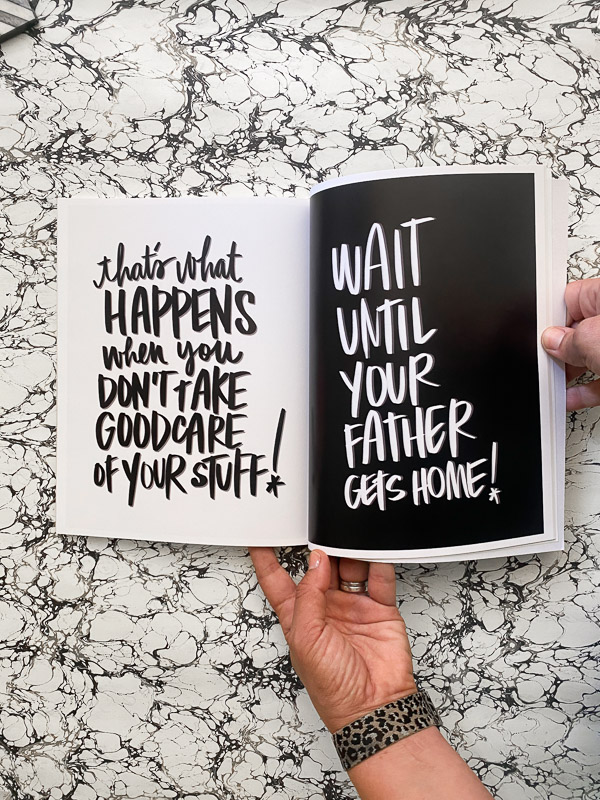 that's what
HAPPENS
when you
DON'T tAKE
GOODCARE
OF YOUR STUFF!
WAIT
UNTIL
YOUR
FATHER
GETS HOME!